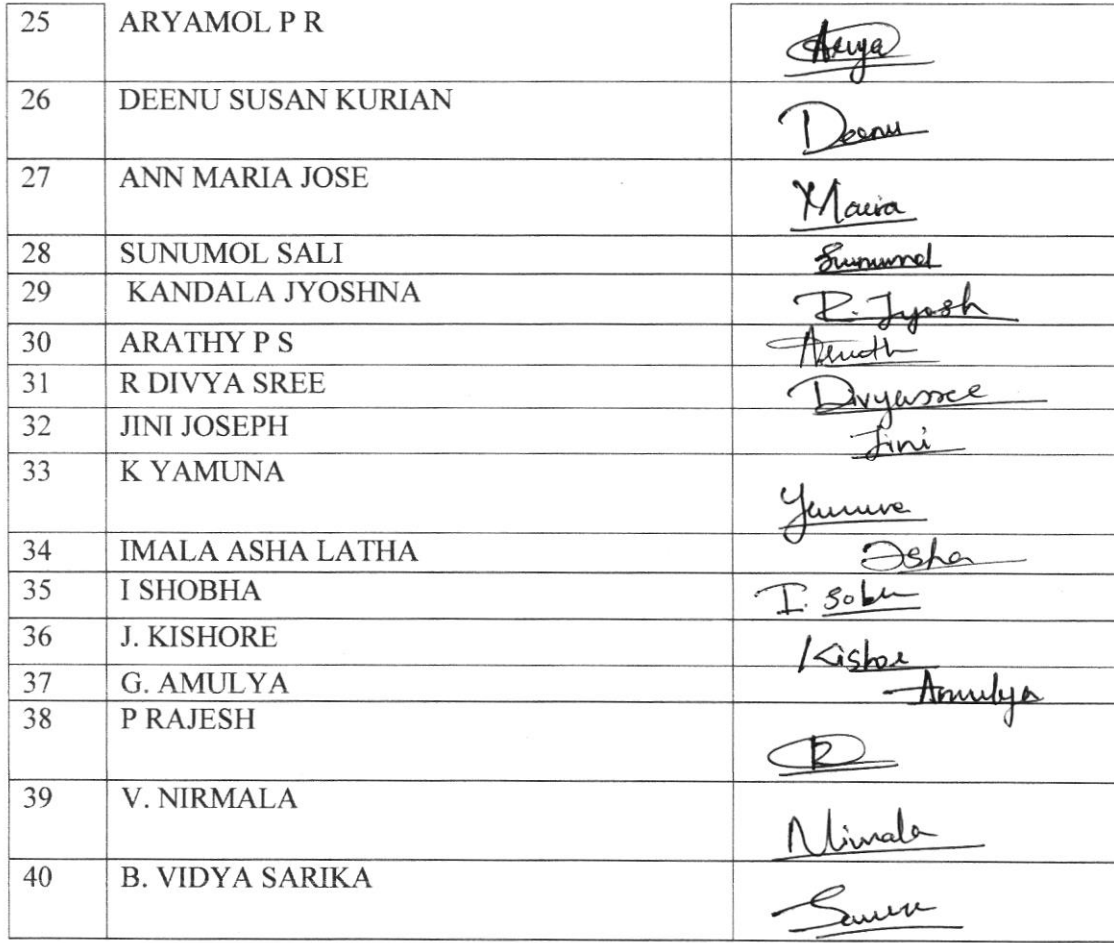 25 ARYAMOL P R Arya
26 DEENU SUSAN KURIAN Deenu
27 ANN MARIA JOSE Maria
28 SUNUMOL SALI Sunumol
29 KANDALA JYOSHNA R. Jyosh
30 ARATHY P S
31 R DIVYA SREE Divyasree
32 JINI JOSEPH Jini
33 K YAMUNA Yamuna
34 IMALA ASHA LATHA Asha
35 I SHOBHA I. Sobh
36 J. KISHORE Kishore
37 G. AMULYA Amulya
38 P RAJESH R
39 V. NIRMALA Nirmala
40 B. VIDYA SARIKA